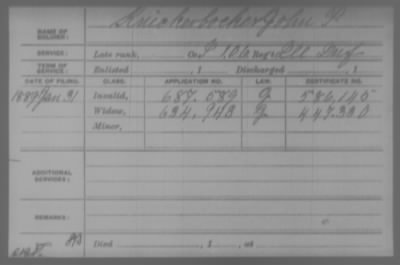 NAME OF SOLDIER: Knickerbocker John P
SERVICE: Late rank, Co. F 106 Reg't Ill Inf
TERM OF SERVICE: Enlisted , 1 Discharged , 1
DATE OF FILING. CLASS. APPLICATION NO. LAW. CERTIFICATE NO.
1889 Jan 31 Invalid, 687.589 G 586.145
Widow, 634,943 G 447.330
Minor,
ADDITIONAL SERVICES:
REMARKS:
Died , 1 , at